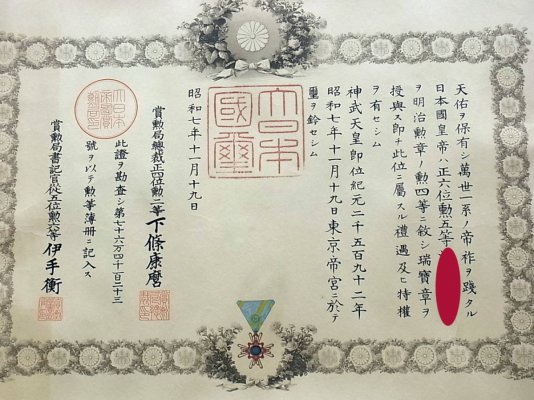 天佑ヲ保有シ萬世一系ノ帝祚ヲ踐タル
日本國皇帝ハ正六位勲五等
ヲ明治勲章ノ勲四等ニ敍シ瑞寶章ヲ
授與ス即チ此位ニ屬スル禮遇及ヒ特權
ヲ有セシム
神武天皇即位紀元二千五百九十二年
昭和七年十一月十九日東京帝宮ニ於テ
璽ヲ鈐セシム
大日本
國璽
昭和七年十一月十九日
賞勲局總裁正四位勲二等下條康麿
此證ヲ勘査シ第七十六万四千百二十三
號ヲ以テ勲等簿冊ニ記入ス
賞勲局書記官從五位勲六等伊手衡